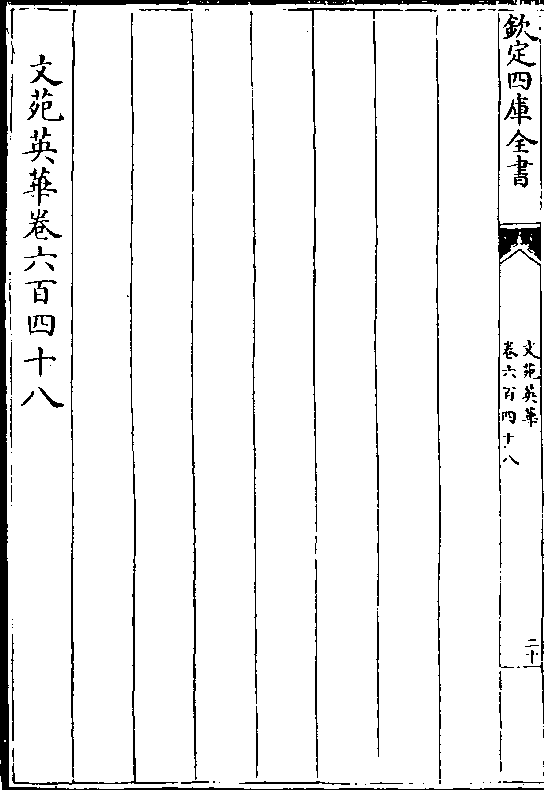 欽定四庫全書
文苑英華
卷六百四十八
二十
文苑英華卷六百四十八